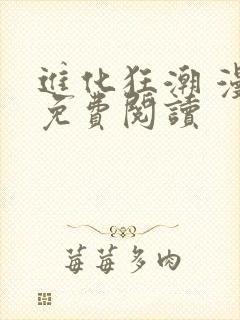 進化狂潮 漫
免費閱讀
莓莓多肉